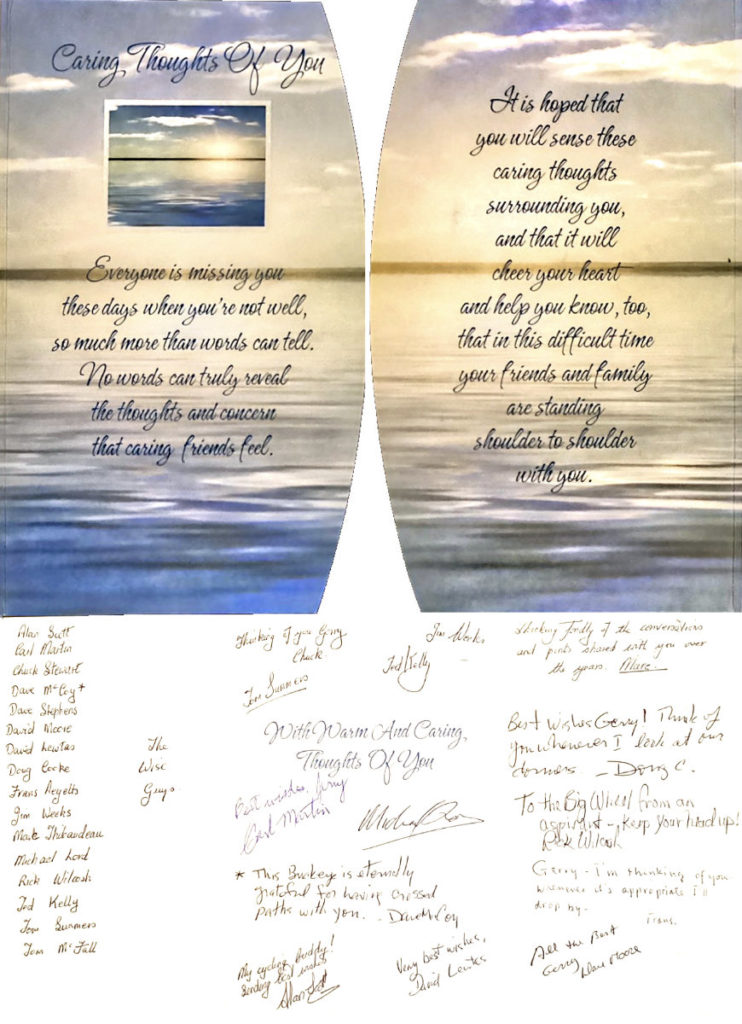 Caring Thoughts Of You
Everyone is missing you
these days when you're not well,
so much more than words can tell.
No words can truly reveal
the thoughts and concern
that caring friends feel.
It is hoped that
you will sense these
caring thoughts
surrounding you,
and that it will
cheer your heart
and help you know, too,
that in this difficult time
your friends and family
are standing
shoulder to shoulder
with you.
Alan Scott
Carl Martin
Chuck Stewart
Dave McCoy*
Dave Stephens
David Moore
David Lewtas
Doug Cocke
Frans
Jim Weeks
Mark Thibaudeau
Michael Lord
Rick Wilcosh
Ted Kelly
Tom Summers
Tom McFall
The
Wise
Guys.
Thinking of you Gerry
Chuck.
Tom Summers
Jim Weeks
Ted Kelly
thinking fondly of the conversations
and pints shared with you over
the years. Marc.
With Warm And Caring
Thoughts Of You
Best wishes Gerry
Carl Martin
Michael
Best wishes Gerry! Think of
you whenever I look at our
dormers. - Doug C.
To the Big Wheel from an
aspirant - keep your head up!
Rick Wilcosh
* This Buckeye is eternally
grateful for having crossed
paths with you. . Dave McCoy
Gerry - I'm thinking of you
whenever it's appropriate I'll
drop by.
Frans.
My cycling buddy!
Sending best wishes
Alan Scott
Very best wishes,
David Lewtas
All the Best
Gerry
Dave Moore